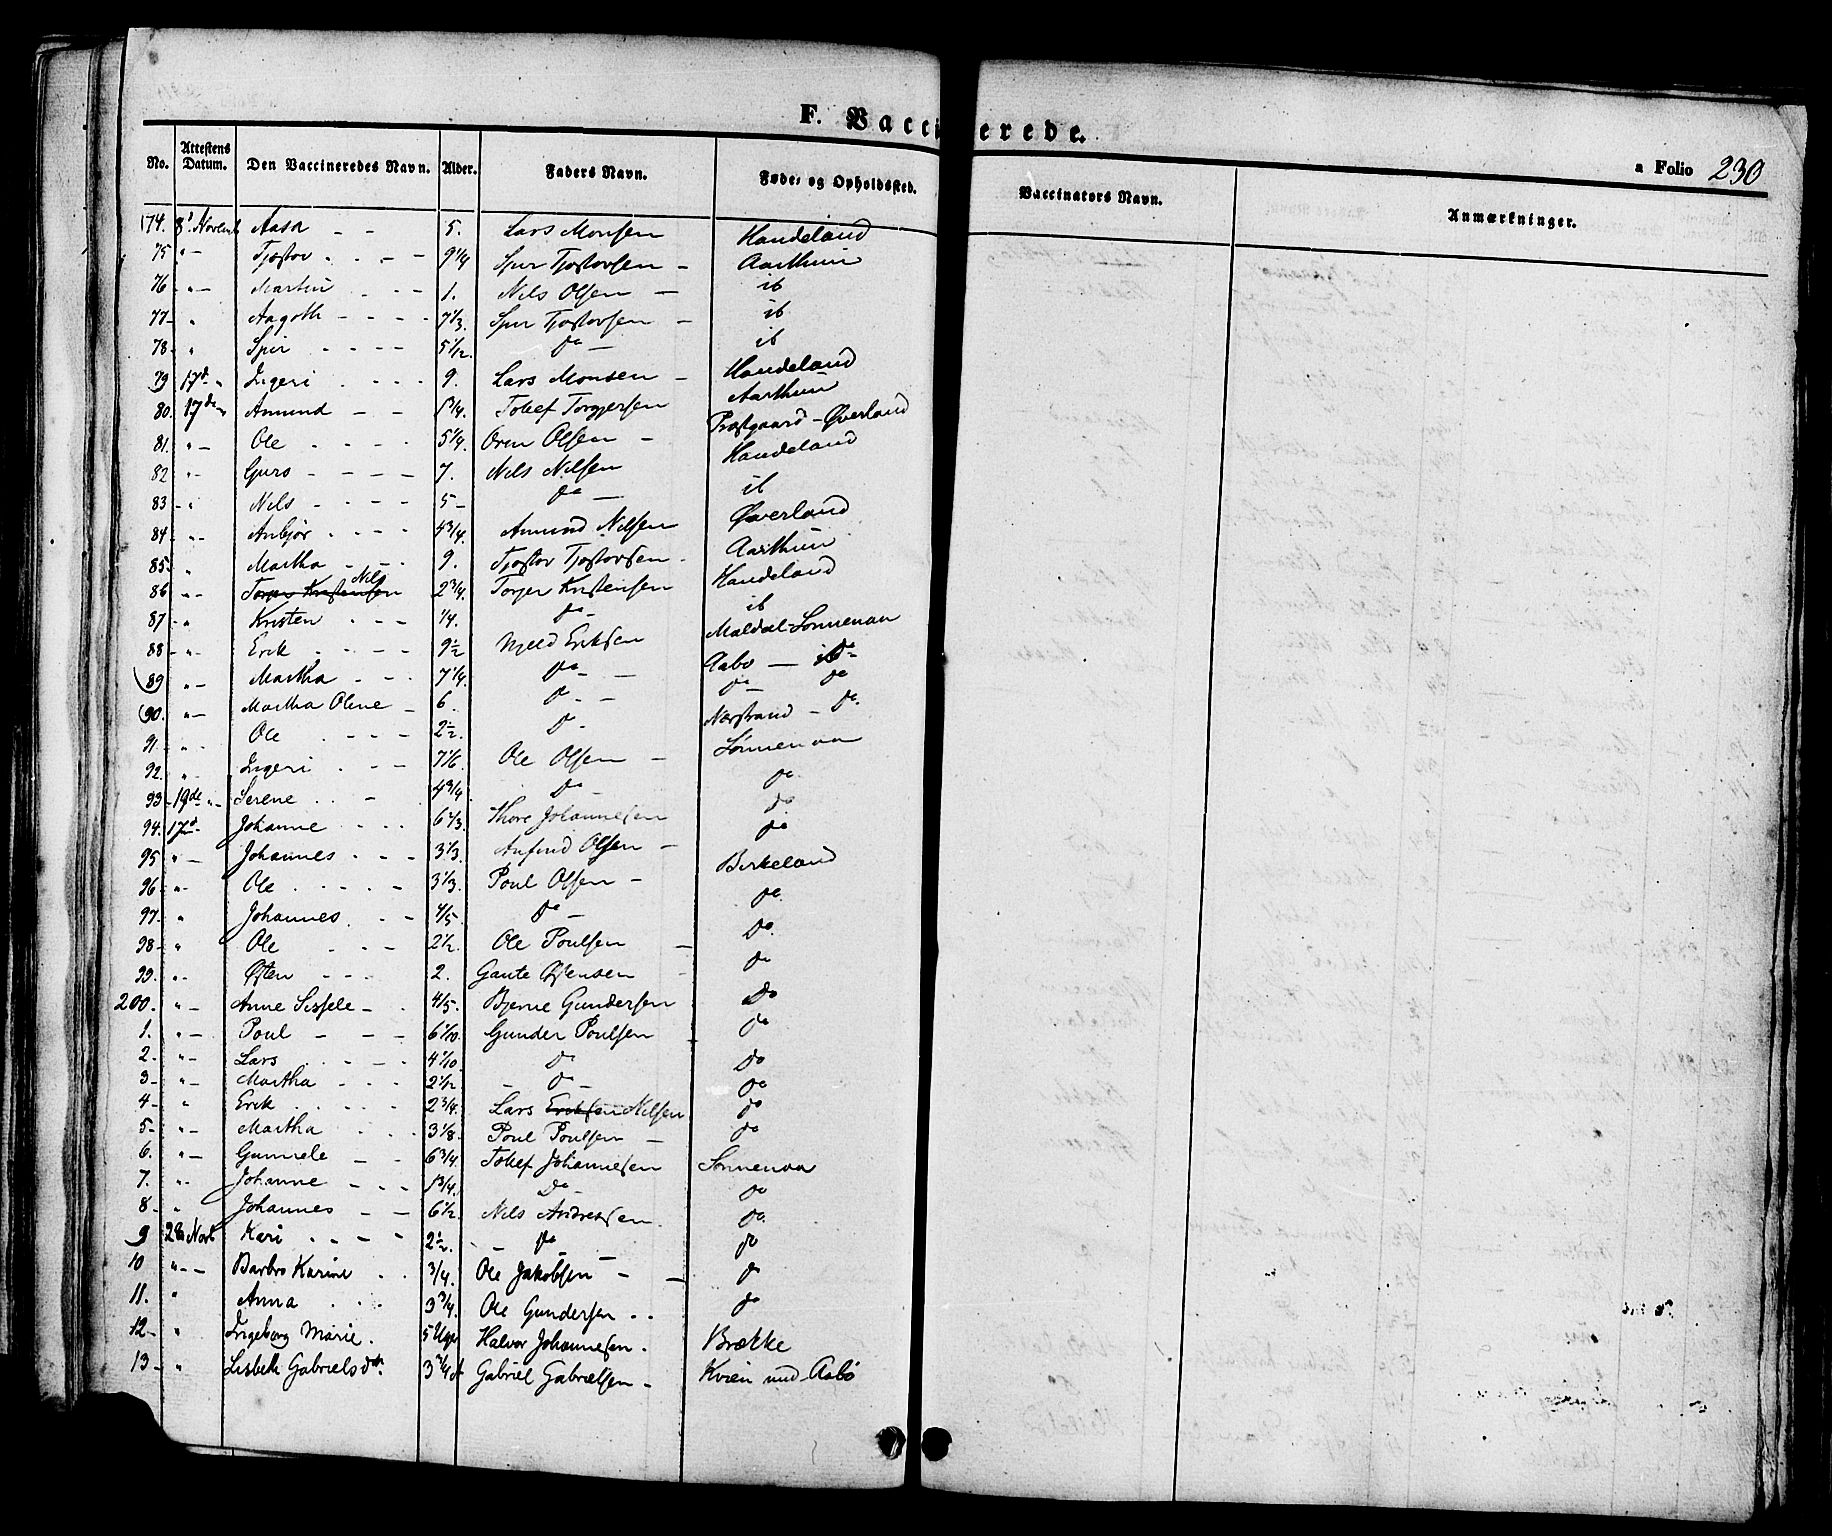 F. Vaccinerede.
a Folio 230
No. Attestens Datum. Den Vaccineredes Navn. Alder. Faders Navn. Føde- og Opholdssted. Vaccinators Navn. Anmærkninger.
174. 8' Novemb Aasa - - 5. Lars Monsen Handeland
75 " - Tjøstov - - - 9 1/4 Tjøstovsen - Aarthun
76 - " - Martin - - - 1. Nils Olsen - ib
77 - " Aagoth - - - 7 1/3 Tjostovsen - ib
78 - " - - - - 5 1/12. do - ib
79 17d - " Ingeri - - - 9. Lars Monsen - Handeland
80. 17de " Amund - - 1 3/4. Tollef Torgersen Aarthun
81. " - Ole - - - - 5 1/4. Orm Olsen - Præstgaard - Øverland
82 " - Guro - - - - 7. Nils Nilsen Handeland
83 - " Nils - - - - 5 - do - ib
84 " - Anbjør - - - - 4 3/4. Amund Nilsen Øverland
85 - " Martha - - - 9. Tjøstov Tjøstovsen - Aarthun
86 " - Torger Kristensen Nils 2 3/4. Torger Kristensen Handeland
87 - " Kristen - - - 1/4. do - ib
88 - " - Erik - - - - 9 1/2 Njeld Eriksen Maldal - Sønnenaa
89 " - Martha - - - 7 1/4. do - - Aabø - do -
90. " - Martha Oline - 6. do - - do - do
91. " - Ole - - - 2 1/2. do - Nærstrand - do.
92. " - Ingeri - - - 7 1/6. Ole Olsen - Sønnenaa
93 - 19de " - Serene - - - 4 3/4. do - do
94. 17d - Johanne - - - 6 2/3. Thore Johannesen do
95 " - Johannes - - - 3 1/3. Anfind Olsen - do
96 " - Ole - - - - - 3 1/3. Poul Olsen - Birkeland
97 - " Johannes - - 4/5. do - do.
98 - " Ole - - - 2 1/2. Ole Poulsen - Do.
99. " - Østen - - - 2. Gaute Østensen - do
200. " - Anne Sissele - - 4/5. Bjerne Gundersen Do
1. " - Poul - - - 6 1/10. Gunder Poulsen do
2. " - Lars - - - - 4 1/10. do do
3 - " - Martha - - - 2 1/2. - do - do
4 - " Erik - - - - 2 3/4. Lars Eriksen Nilsen do
5 - " - Martha - - - 3 1/8. Poul Poulsen - do
6. " - Gunnele - - 6 3/4. Tollef Johannesen Sønnenaa
7. " - Johanne - - - 1 3/4. Do - do
8 - " Johannes - - 6 1/2. Nils Andresen. do.
9 28 Novb Kari - - - - 2 1/2. - do - do
10 " - - Barbro Karine - - 3/4. Ole Jakobsen - - do
11. " Anna - - - 3 3/4. Ole Gundersen - - do
12 - " Ingeborg Marie. 5 Uger Halvor Johannesen. Brække
13 - " Lisbeth Gabrielsdtr. 3 3/4 Gabriel Gabrielsen - Kvien und. Aabø